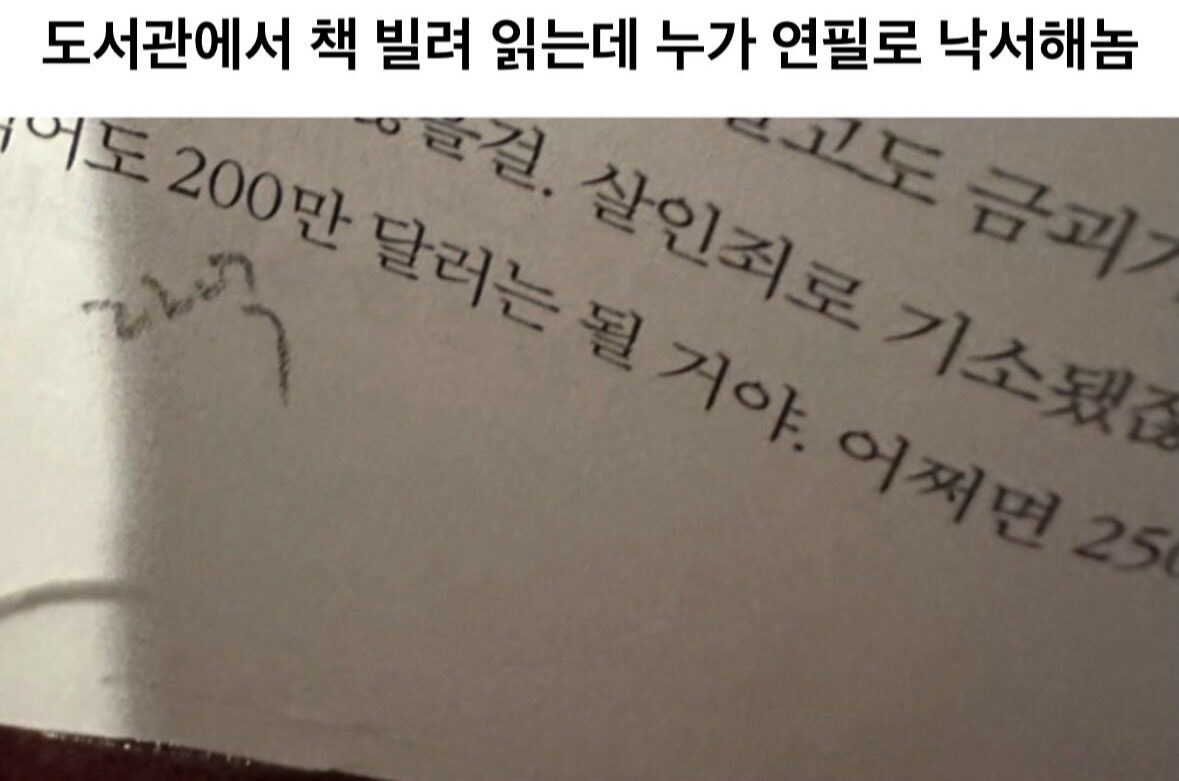 도서관에서 책 빌려 읽는데 누가 연필로 낙서해놈
고도 금괴
을걸. 살인죄로 기소됐잖
어도 200만 달러는 될 거야. 어쩌면 250